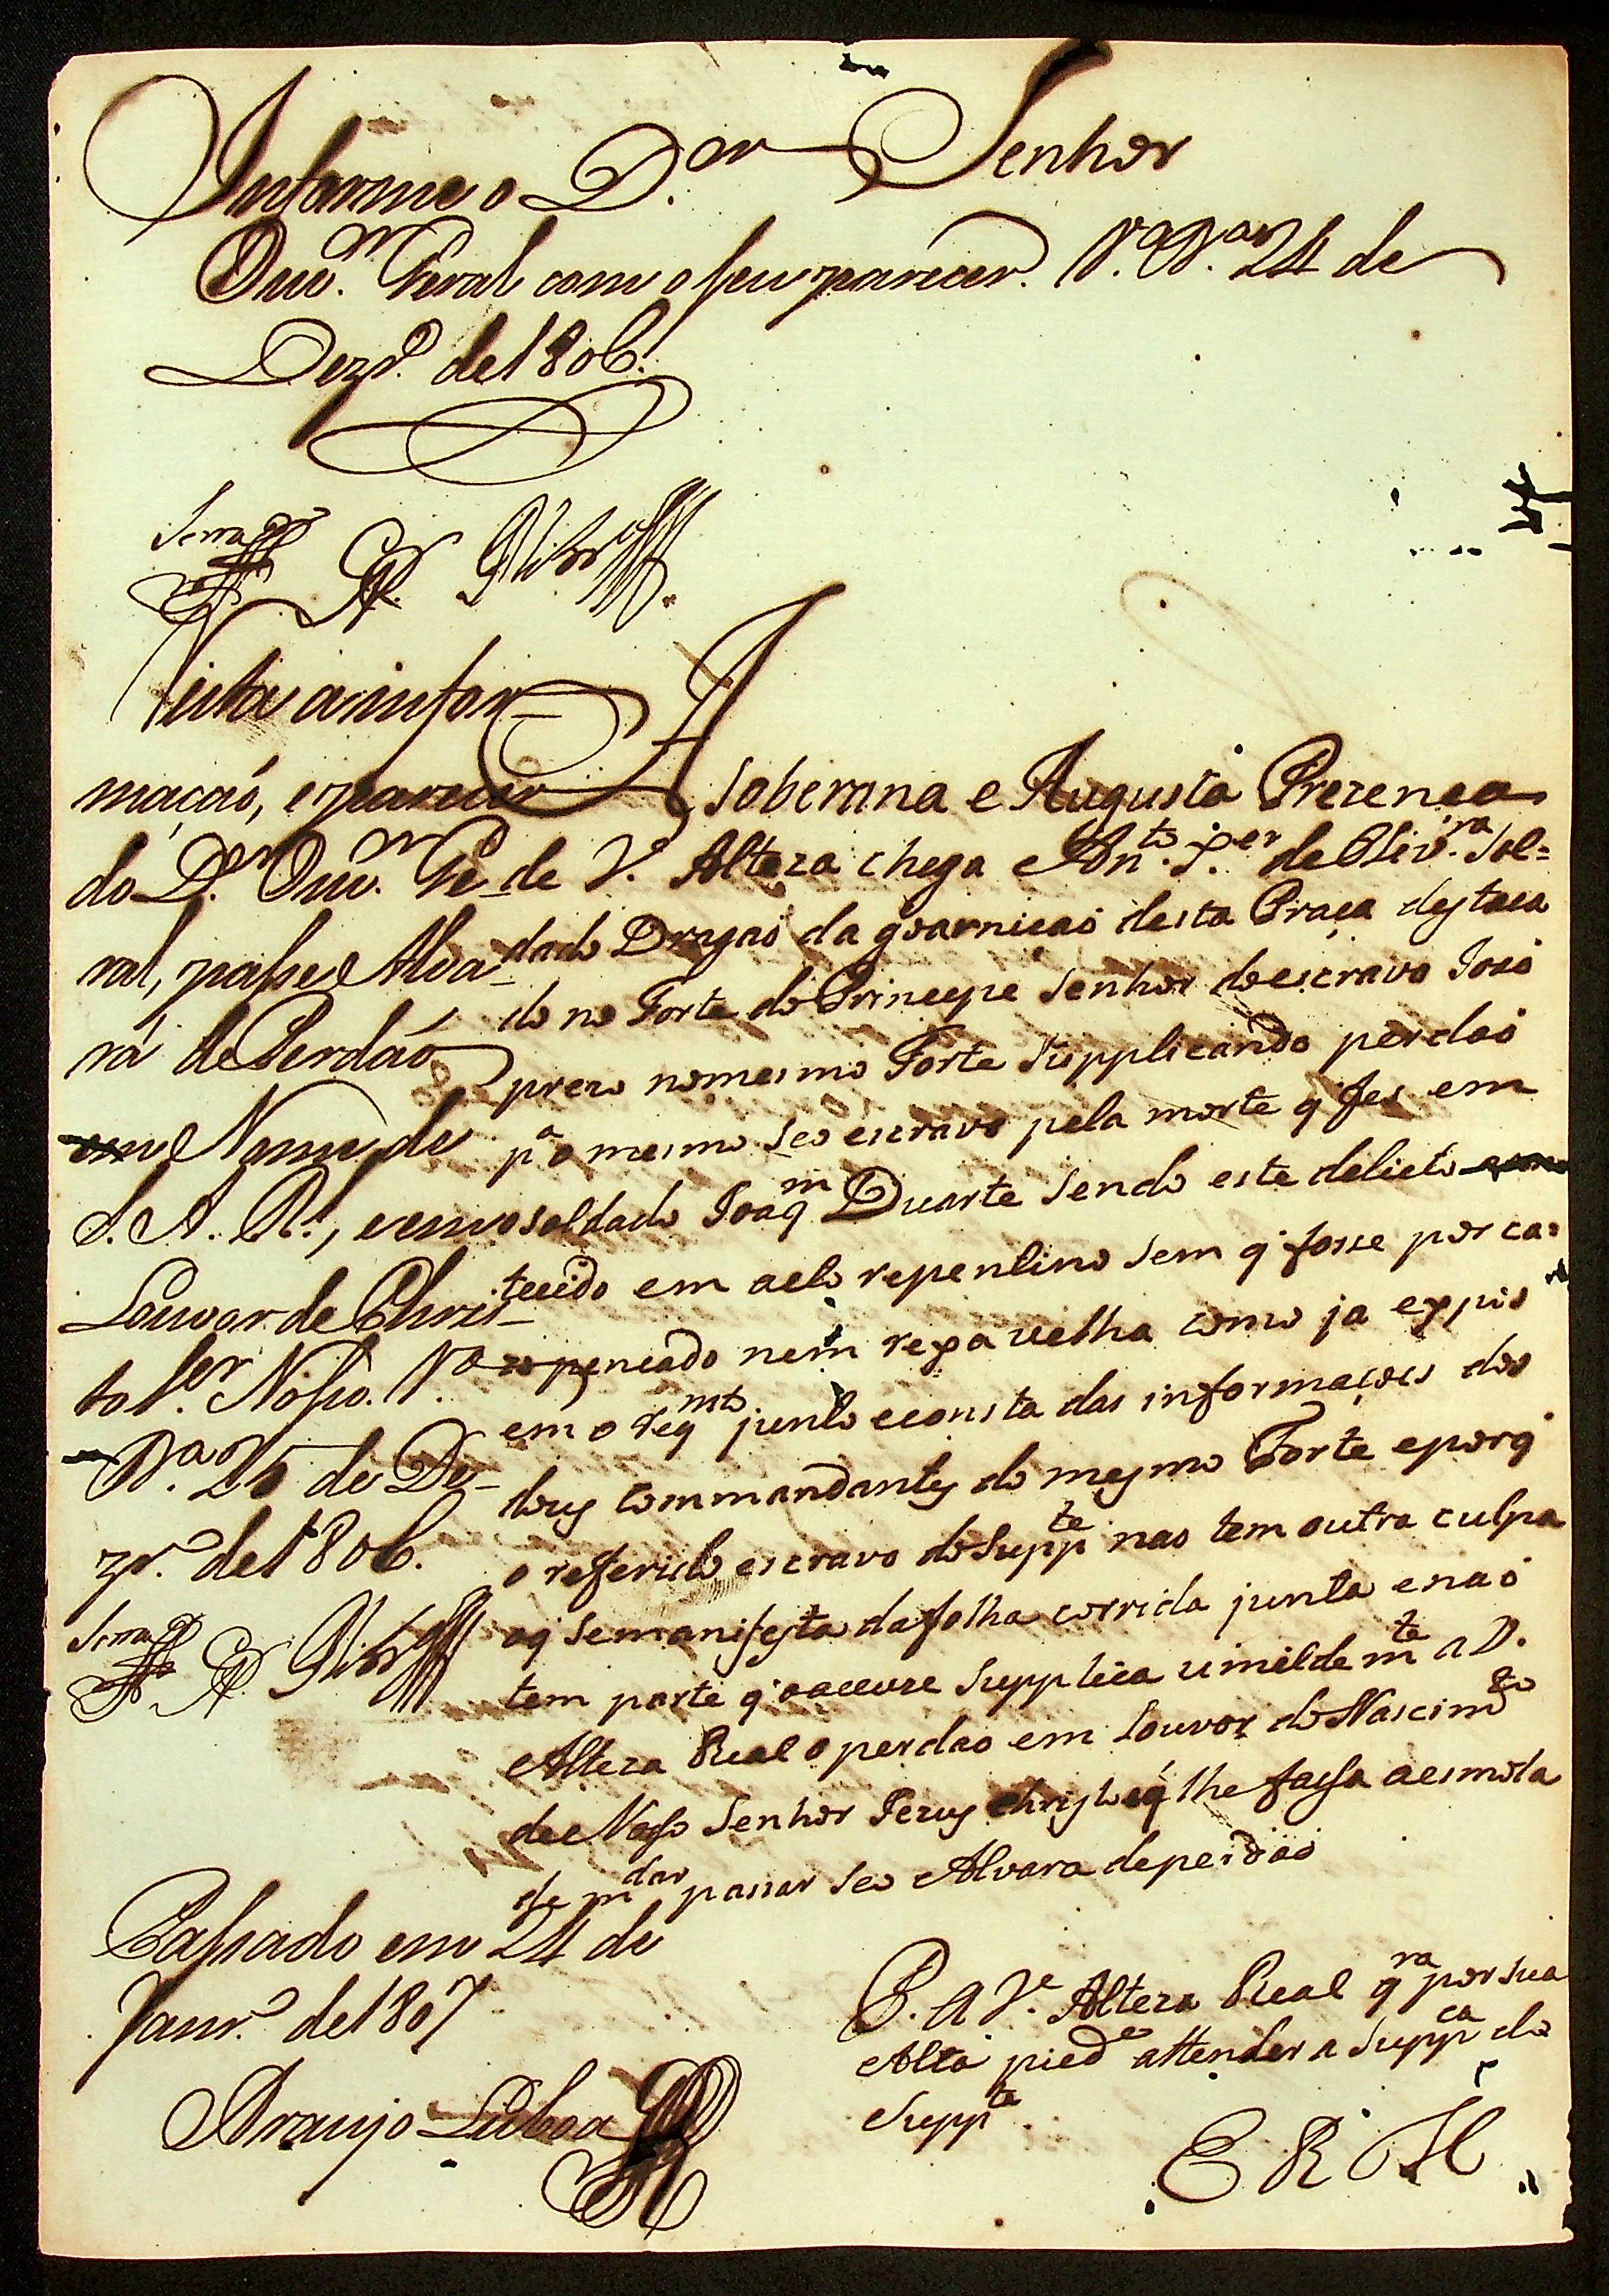 Senhor
Informe o D.or
Ouv.or Geral com o seu parecer. V.a B.a 24 de
Dezr.o de 1806.
Vista a infor-
maçaõ, e parecer
do D.or Ouv.or Ge-
ral, passe Alva-
rá de Perdaõ
em Nome de
S. A. R., e em
Louvor de Chris-
to S.or Nosso. V.a
B.a 25 de De-
zr.o de 1806.
A Soberana e Augusta Prezença
de V. Alteza chega Ant.o Per.a de Oliv.ra Sol=
dado Dragaõ da goarnicaõ desta Praça destaca
do no Forte do Princepe Senhor do escravo Joaõ
prezo no mesmo Forte Supplicando perdaõ
p.a o mesmo Seo escravo pela morte q fes em
o soldado Joaq.m Duarte Sendo este delicto
tecido em acto repentino Sem q' fosse por ca=
zo pençado nem rexa velha como ja expôs
em o req.mto junto e consta das informaçoes dos
dous Commandantes do mesmo Forte e porq'
o referido escravo do Supp.te nao tem outra culpa
oq' Se manifesta da folha corrida junta e naõ
tem parte q' o acuze Supplica umildem.te a V.
Alteza Real o perdao em Louvor do Nascim.to
de Nosso Senhor Jezus Christo eq' lhe fassa a esmola
de m.dar passar Seo Alvara de perdaõ
P. a V.e Alteza Real q.ra por Sua
Alta pied.e attender a Supp.ca do
Supp.te
E R M
Passado em 24 de
Janr.o de 1807
Araujo Lisboa